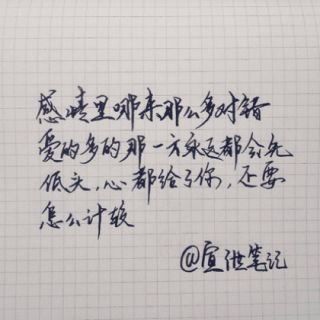 感情里哪来那么多对错
爱的多的那一方永远都会先
低头,心都给了你,还要
怎么计较
@宣世笔记